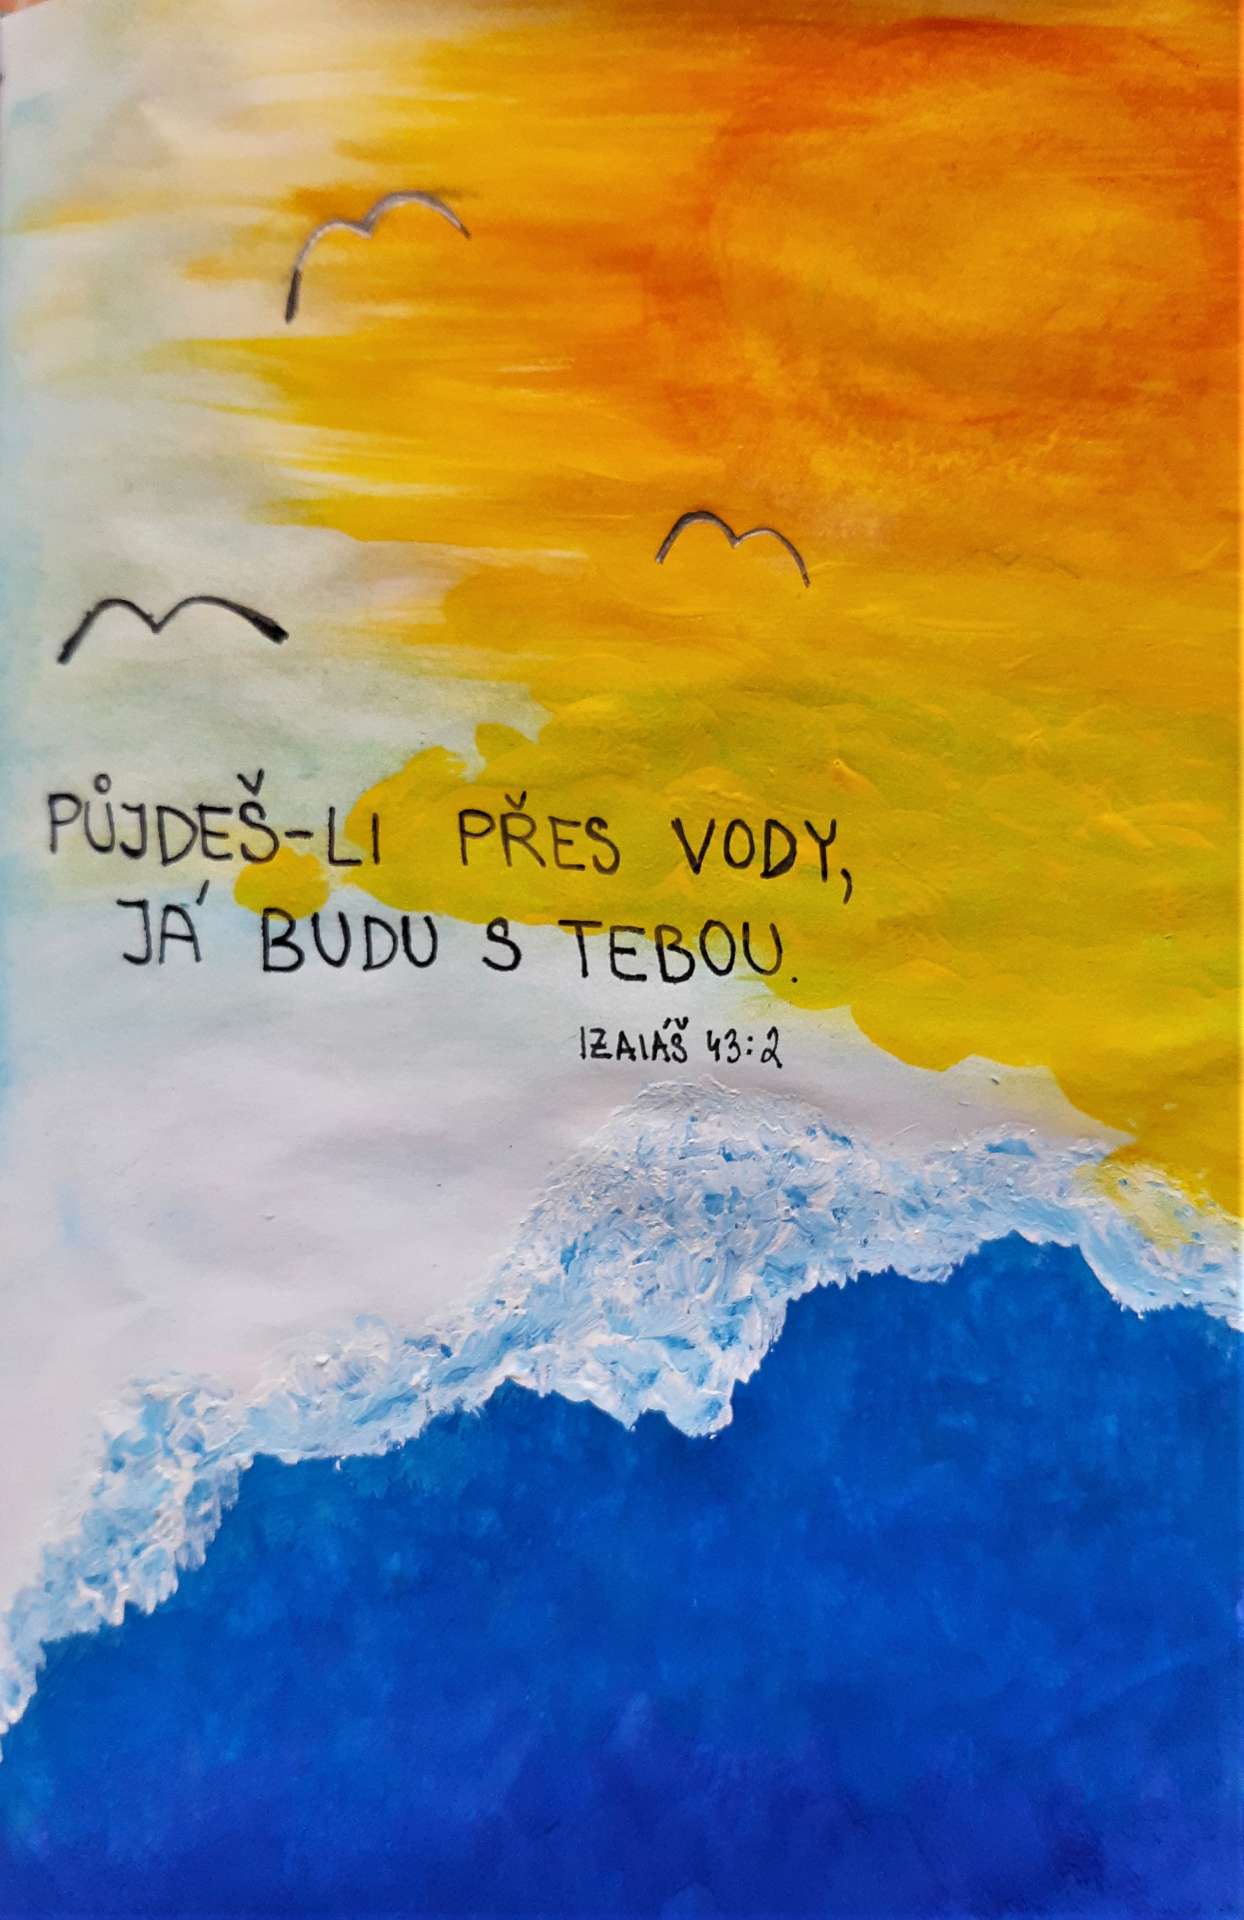 PŮJDEŠ-LI PŘES VODY,
JÁ BUDU S TEBOU.
IZAIÁŠ 43:2